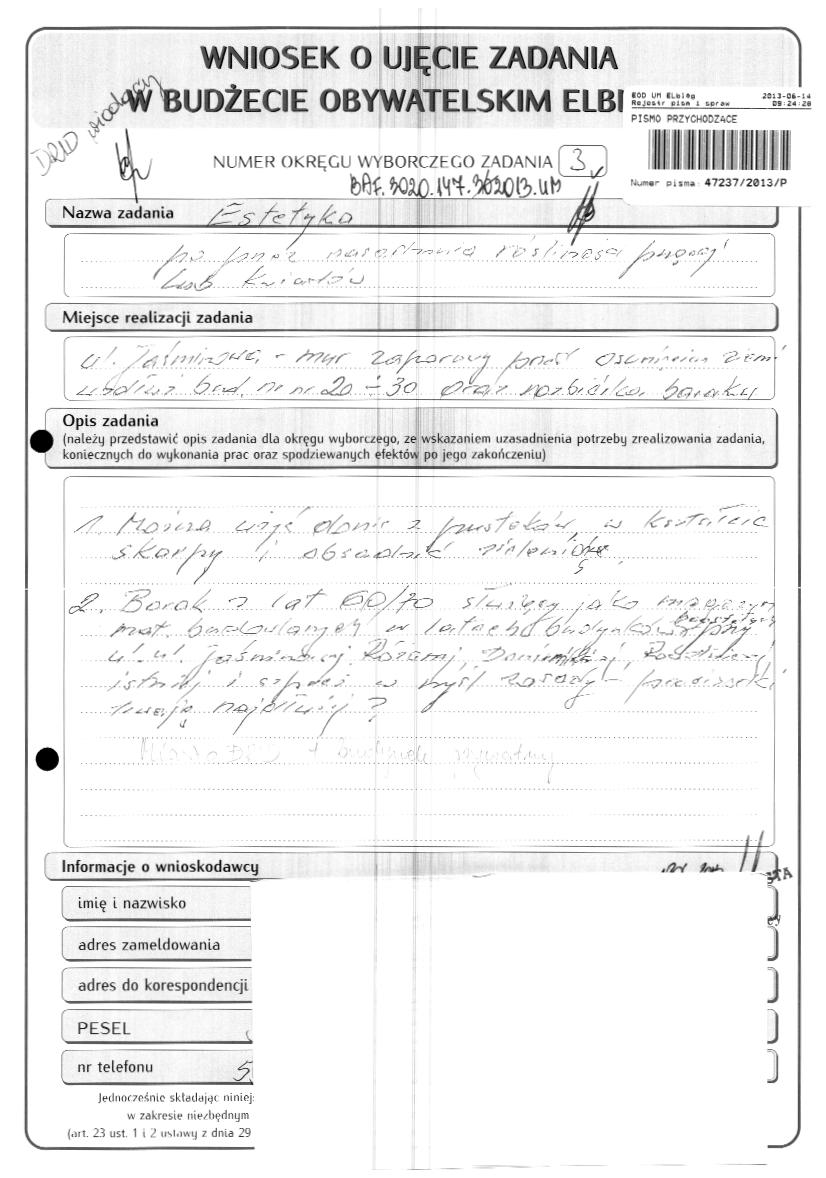 WNIOSEK O UJĘCIE ZADANIA
W BUDŻECIE OBYWATELSKIM ELBL
DRD wiodący
EOD UM Elbląg 2013-06-14
Rejestr pism i spraw 09:24:28
PISMO PRZYCHODZĄCE
Numer pisma: 47237/2013/P
NUMER OKRĘGU WYBORCZEGO ZADANIA 3
BAF.3020.147.362013.UM
Nazwa zadania Estetyka
po przez nasadzenia roślinością pnącej
lub kwiatów
Miejsce realizacji zadania
ul. Jaśminowa - mur zaporowy przed osunięciem ziemi
wzdłuż bud. nr nr 20 - 30 oraz rozbiórka baraku
Opis zadania
(należy przedstawić opis zadania dla okręgu wyborczego, ze wskazaniem uzasadnienia potrzeby zrealizowania zadania,
koniecznych do wykonania prac oraz spodziewanych efektów po jego zakończeniu)
1. Można użyć donic z pustaków w kształcie
skarpy i obsadzić zielenią
2. Barak z lat 60/70 służący jako magazyn
mat. budowlanych w latach budynków przy
ul. ul. Jaśminowej, Różanej,
istnieje i szpeci w myśl zasady - prowizorki
trwają najdłużej ?
Miasto DRD + budynek prywatny
Informacje o wnioskodawcy
imię i nazwisko
adres zameldowania
adres do korespondencji
PESEL
nr telefonu 5
Jednocześnie składając niniejs
w zakresie niezbędnym
(art. 23 ust. 1 i 2 ustawy z dnia 29